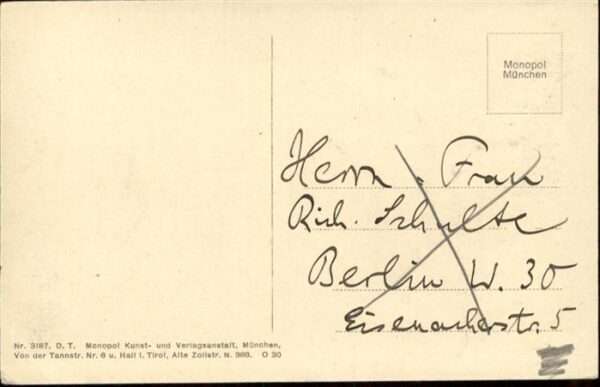 Monopol
München
Herrn . Frau
Rich. Schulte
Berlin W. 30
Eisenacherstr. 5
Nr. 3187. D. T. Monopol Kunst- und Verlagsanstalt, München,
Von der Tannstr. Nr. 6 u. Hall i. Tirol, Alte Zollstr. N. 369. O 30